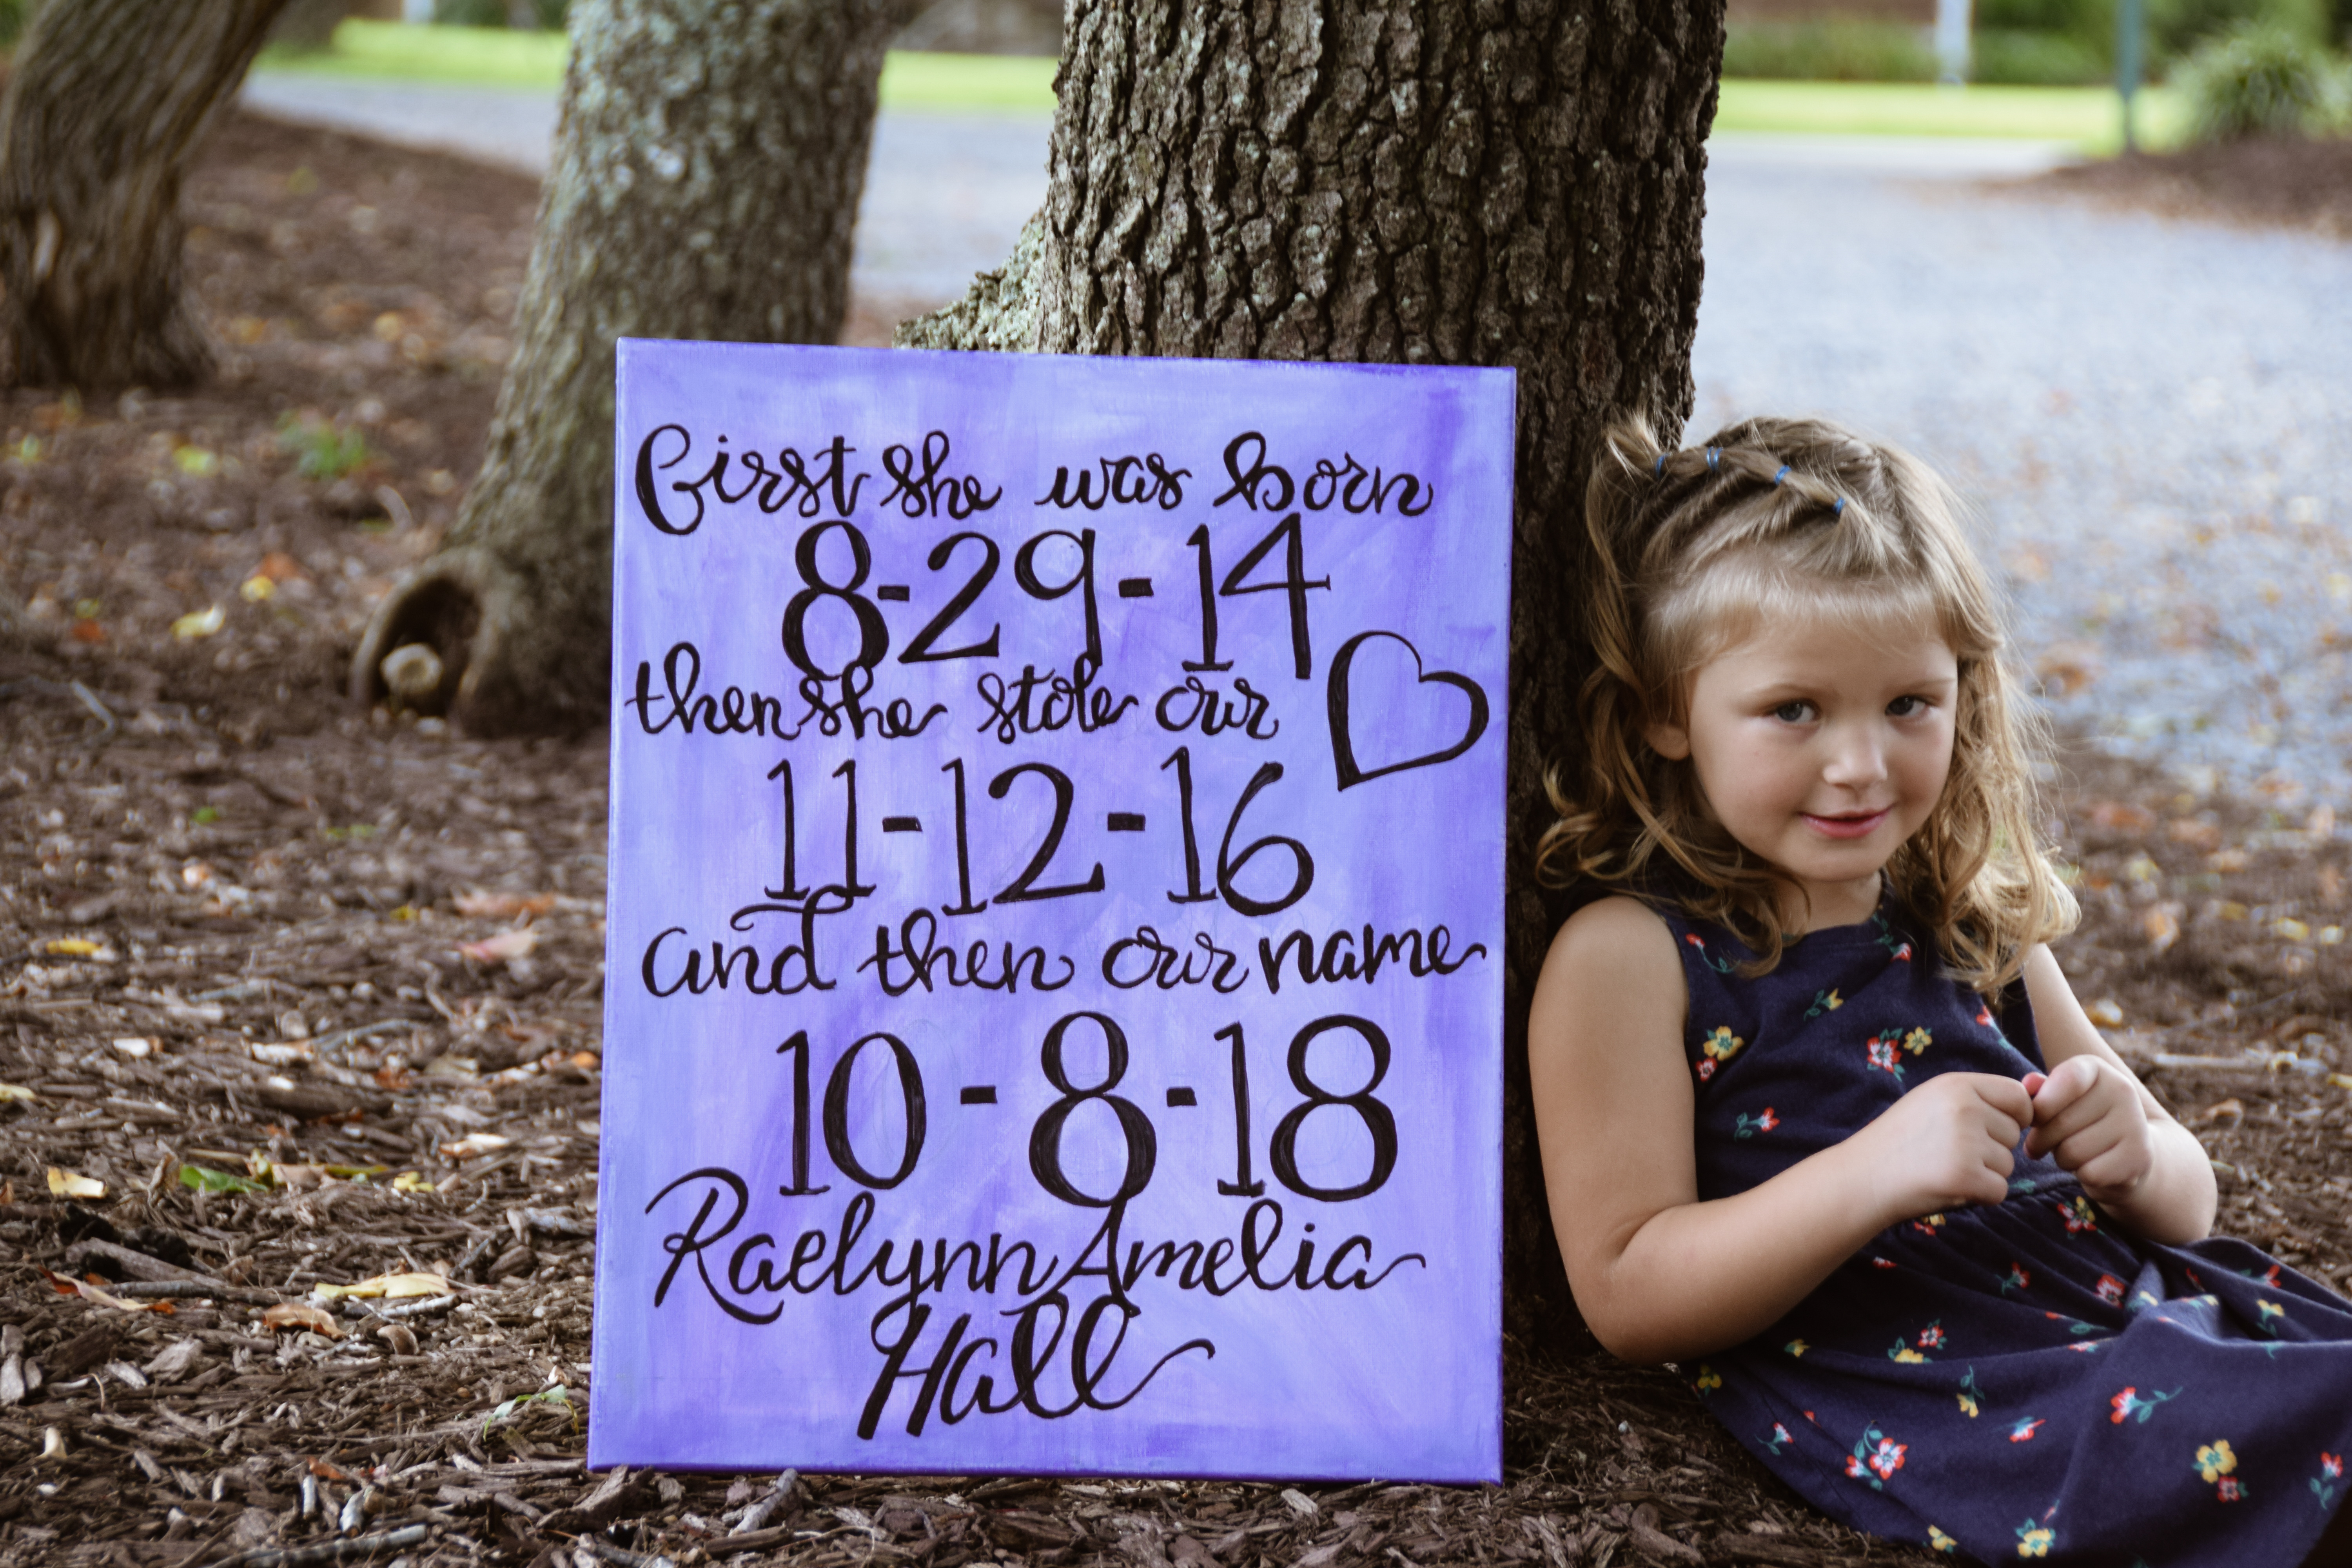 first she was born
8-29-14
then she stole our
11-12-16
and then our name
10-8-18
Raelynn Amelia
Hall